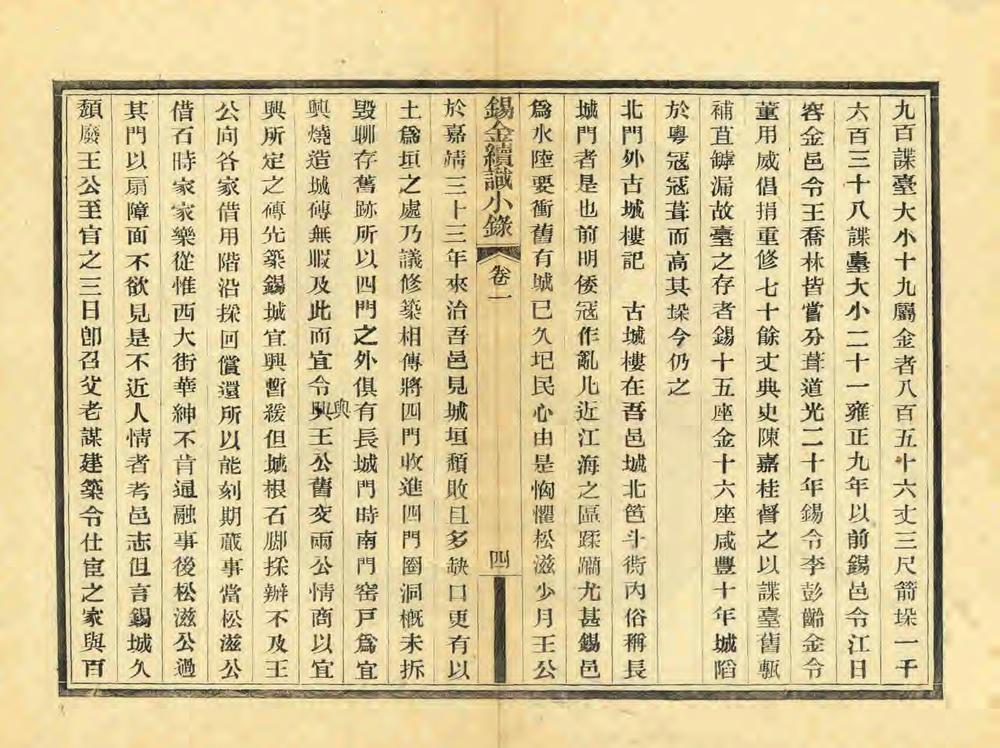 九百諜臺大小十九屬金者八百五十六丈三尺箭垛一千
六百三十八諜臺大小二十一雍正九年以前錫邑令江日
容金邑令王喬林皆嘗分葺道光二十年錫令李彭齡金令
董用威倡捐重修七十餘丈典史陳嘉桂督之以諜臺舊甎
補苴罅漏故臺之存者錫十五座金十六座咸豐十年城陷
於粵寇寇葺而高其垛今仍之
北門外古城樓記 古城樓在吾邑城北笆斗衖內俗稱長
城門者是也前明倭寇作亂凡近江海之區蹂躪尤甚錫邑
爲水陸要衝舊有城已久圮民心由是恟懼松滋少月王公
錫金續識小錄 卷一 四
於嘉靖三十三年來治吾邑見城垣頽敗且多缺口更有以
土爲垣之處乃議修築相傳將四門收進四門圈洞概未拆
毀聊存舊跡所以四門之外俱有長城門時南門窑戶爲宜
興燒造城磚無暇及此而宜令興王公舊交兩公情商以宜
與
興所定之磚先築錫城宜興暫緩但城根石腳採辦不及王
公向各家借用階沿採回償還所以能刻期蕆事當松滋公
借石時家家樂從惟西大街華紳不肯通融事後松滋公過
其門以扇障面不欲見是不近人情者考邑志但言錫城久
頽廢王公至官之三日卽召父老謀建築令仕宦之家與百